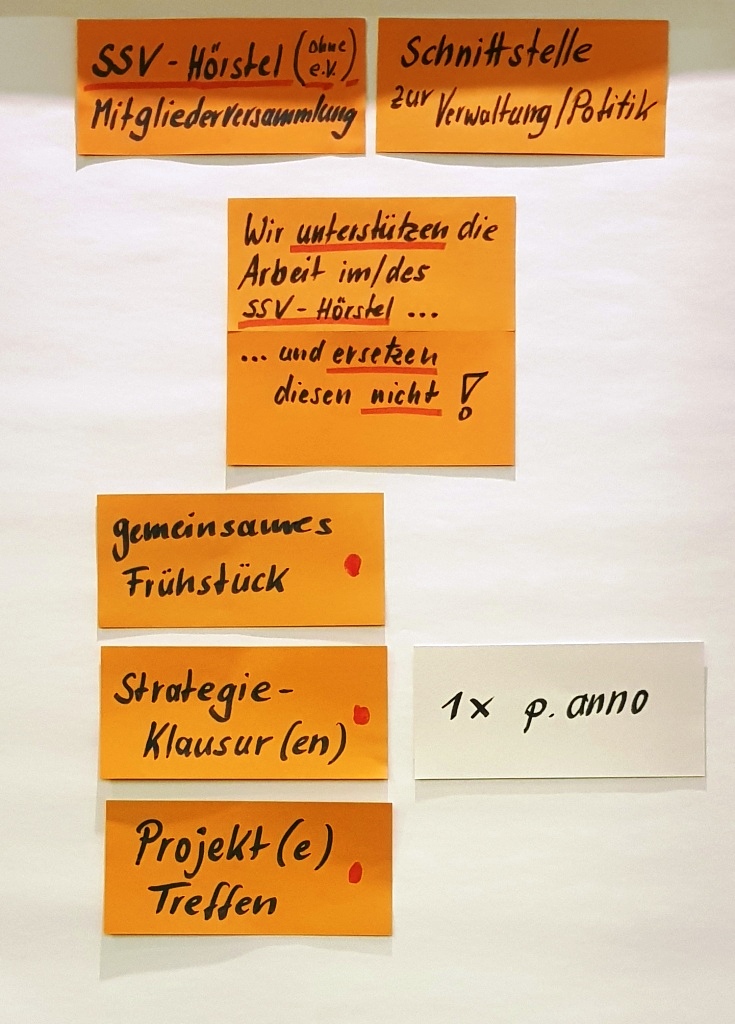 SSV-Hörstel (ohne e.V.)
Mitgliederversammlung
Schnittstelle
zur Verwaltung/Politik
Wir unterstützen die
Arbeit im/des
SSV-Hörstel ...
... und ersetzen
diesen nicht !
gemeinsames
Frühstück
Strategie-
Klausur(en)
1x p. anno
Projekt(e)
Treffen